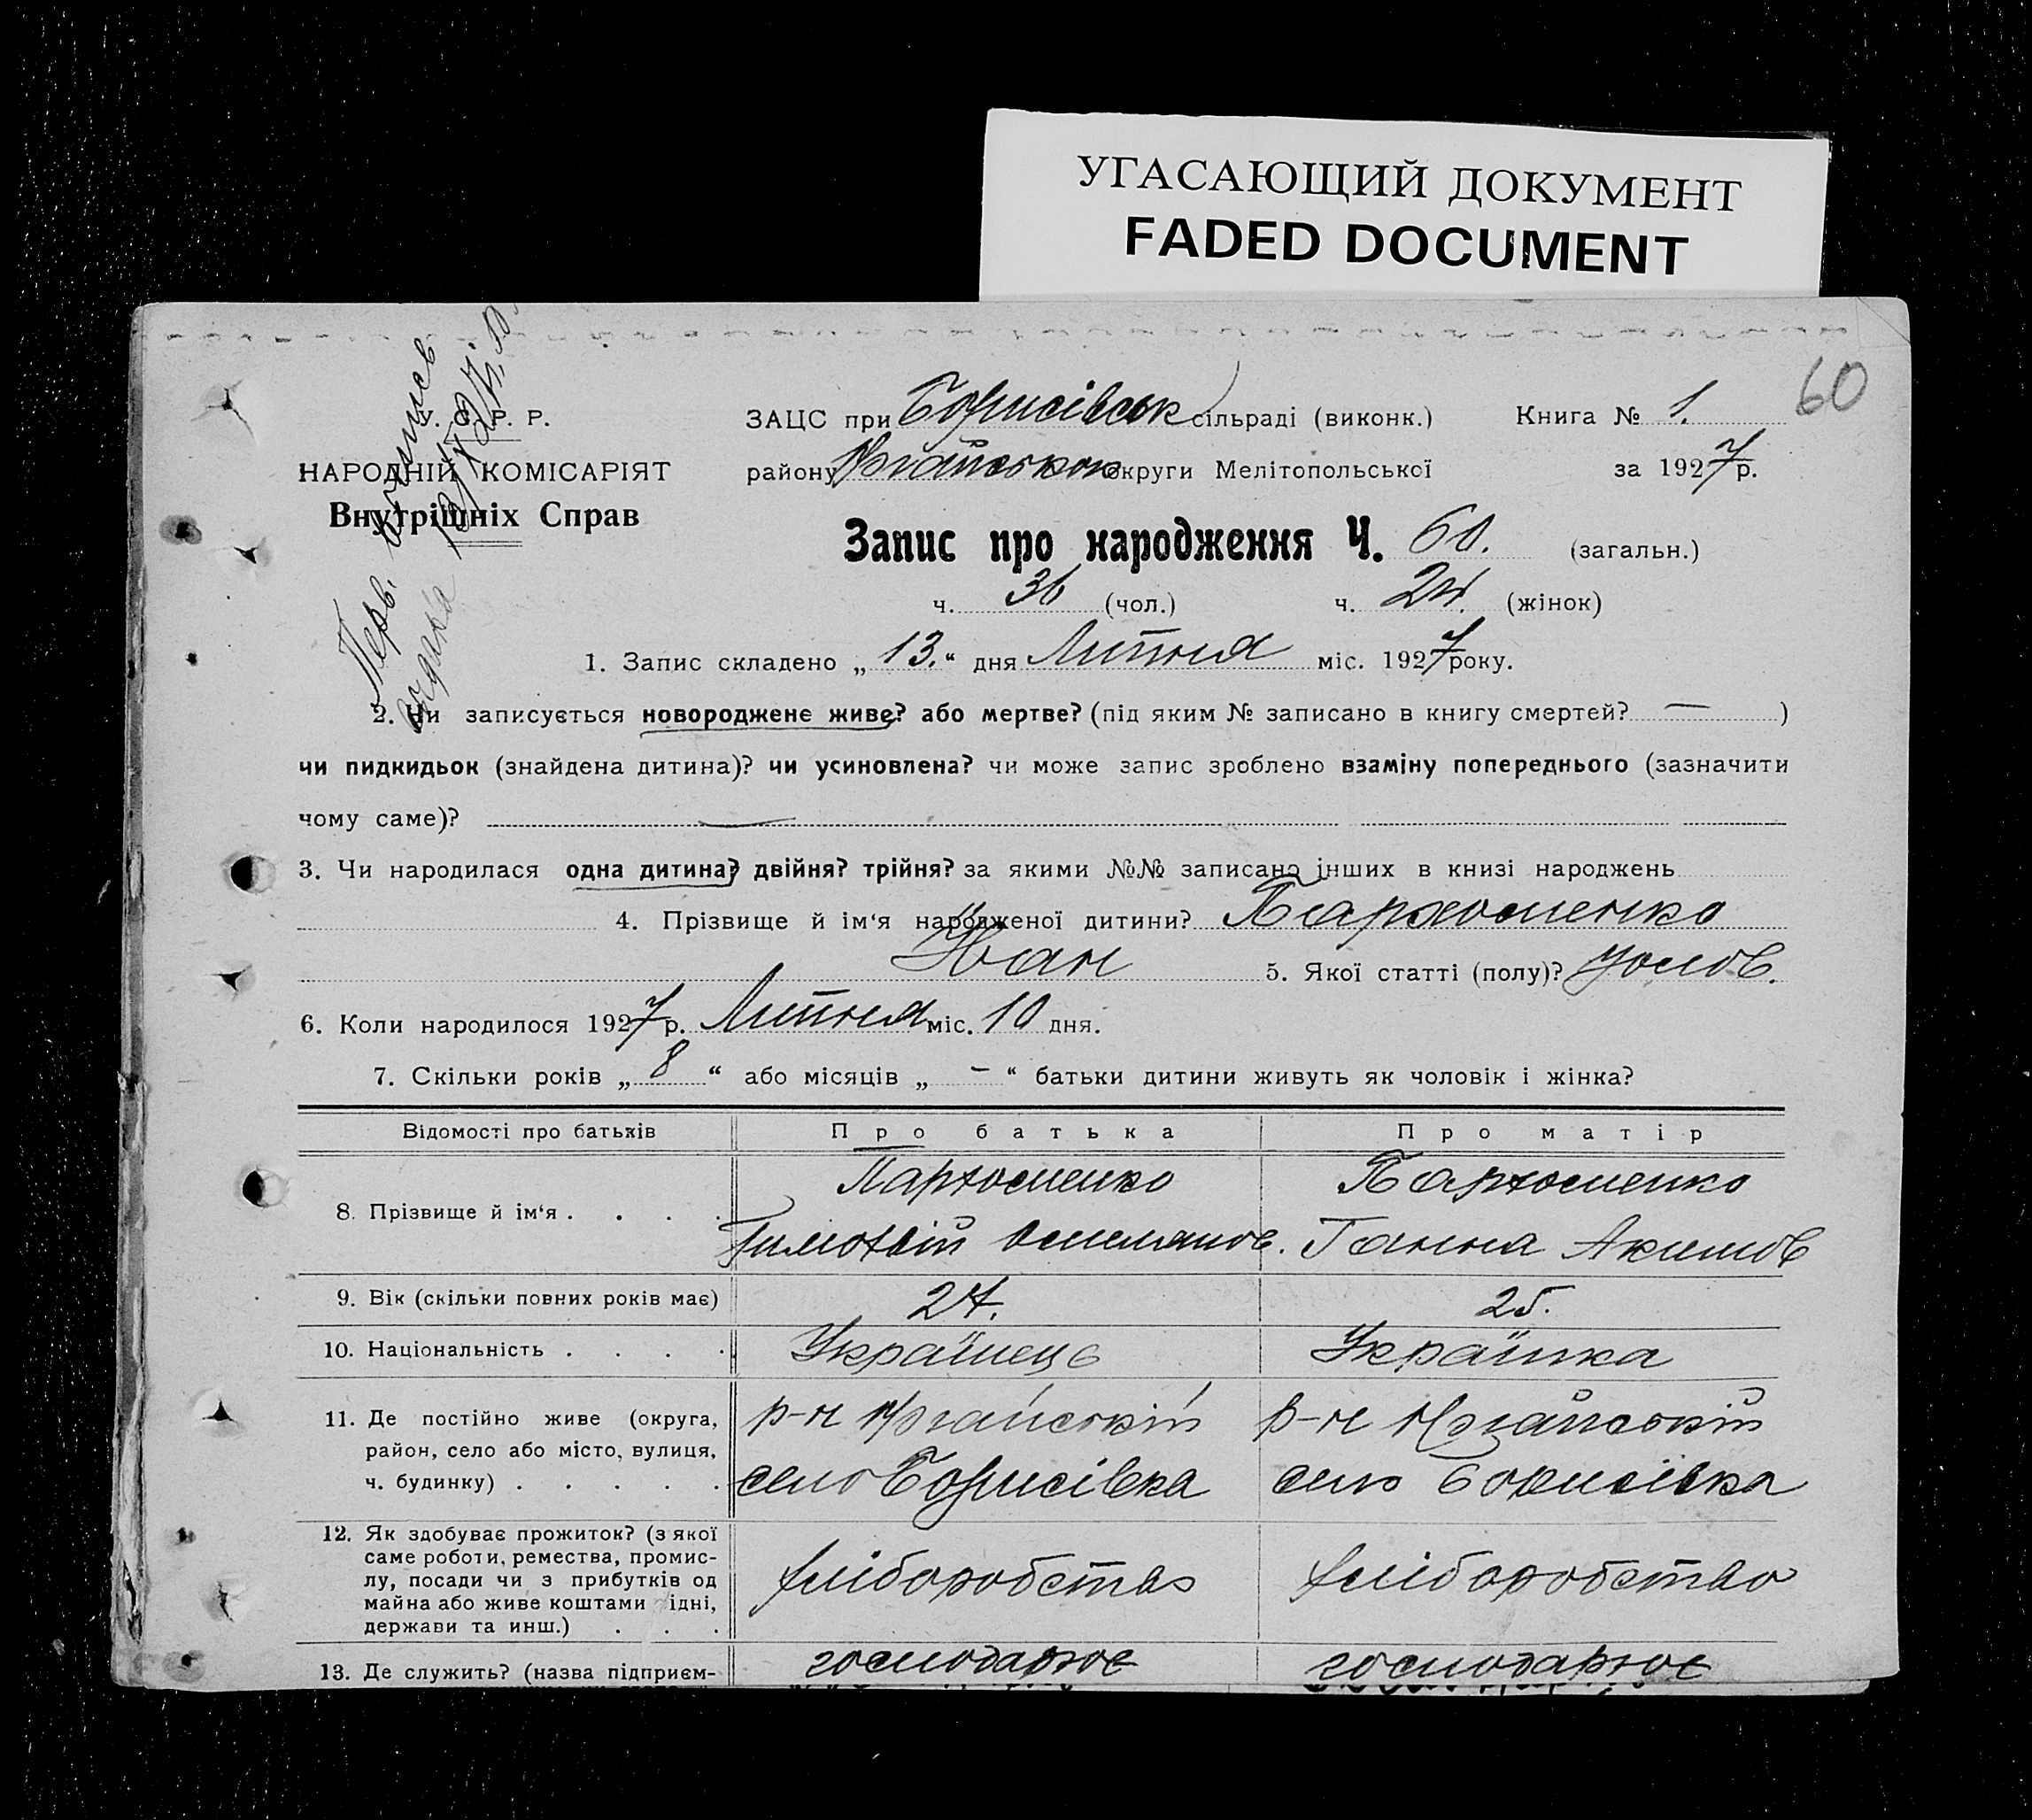 УГАСАЮЩИЙ ДОКУМЕНТ
FADED DOCUMENT
60
У. С. Р. Р.
НАРОДНІЙ КОМІСАРІЯТ
Внутрішніх Справ
Перв. виписв
видана
ЗАЦС при Борисівськ сільраді (виконк.) Книга № 1.
району округи Мелітопольської за 1927 р.
Запис про народження Ч. 60. (загальн.)
ч. 36 (чол.) ч. 24. (жінок)
1. Запис складено „ 13. “ дня Липня міс. 1927 року.
2. Чи записується новороджене живе? або мертве? (під яким № записано в книгу смертей? — )
чи пидкидьок (знайдена дитина)? чи усиновлена? чи може запис зроблено взаміну попереднього (зазначити
чому саме)? —
3. Чи народилася одна дитина? двійня? трійня? за якими №№ записано інших в книзі народжень
4. Прізвище й ім‘я народженої дитини? Пархоменко
Иван 5. Якої статті (полу)? Чолов.
6. Коли народилося 1927 р. Липня міс. 10 дня.
7. Скільки років „ 8 “ або місяців „ – “ батьки дитини живуть як чоловік і жінка?
Відомості про батьків Про батька Про матір
8. Прізвище й ім‘я . . . . Пархоменко Пархоменко
Тимофій Омелянов. Ганна Акимов
9. Вік (скільки повних років має) 27. 25.
10. Національність . . . . Українець Українка
11. Де постійно живе (округа, р-н р-н
район, село або місто, вулиця,
ч. будинку) . . . . . село Борисівка село Борисівка
12. Як здобуває прожиток? (з якої
саме роботи, ремества, промис-
лу, посади чи з прибутків од
майна або живе коштами рідні,
держави та инш.) . . . хліборобство хліборобство
13. Де служить? (назва підприєм- господарює господарює